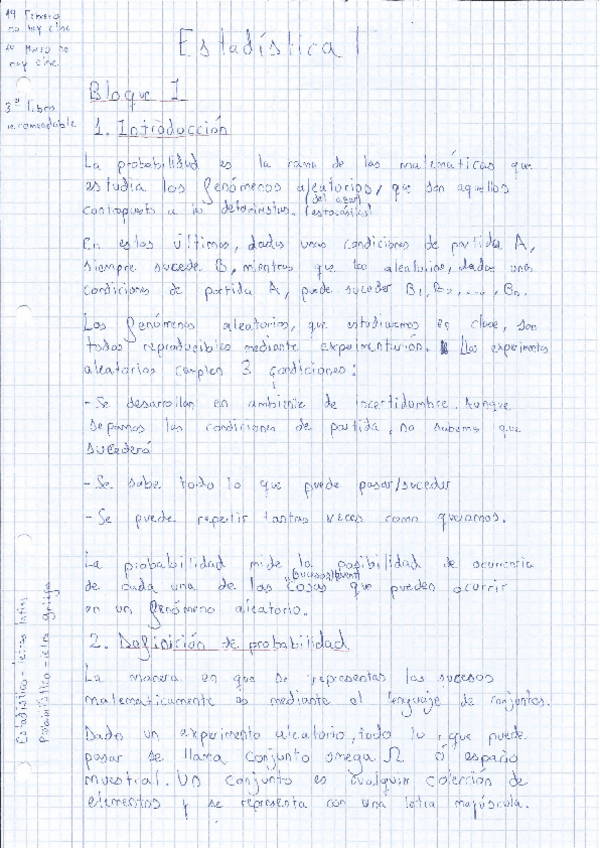 19 Febrero
no hay clase
20 Marzo no
hay clase
3º libro
recomendable
Estadística I
Bloque I
1. Introducción
La probabilidad es la rama de las matemáticas que
estudia los fenómenos aleatorios, que son aquellos
(del azar)
contrapuesto a los deterministas. (estocásticos)
En estos últimos, dadas unas condiciones de partida A,
siempre sucede B, mientras que los aleatorios, dadas unas
condiciones de partida A, puede suceder B1, B2, ..., Bn.
Los fenómenos aleatorios, que estudiaremos en clase, son
todos reproducibles mediante experimentación. Los experimentos
aleatorios cumplen 3 condiciones:
- Se desarrollan en ambiente de incertidumbre. Aunque
sepamos las condiciones de partida, no sabemos que
sucederá
- Se sabe todo lo que puede pasar/suceder
- Se puede repetir tantas veces como queramos.
La probabilidad mide la posibilidad de ocurrencia
de cada una de las cosas que pueden ocurrir
en un fenómeno aleatorio.
2. Definición de probabilidad
La manera en que se representas los sucesos
matemáticamente es mediante el lenguaje de conjuntos.
Dado un experimento aleatorio, todo lo que puede
pasar se llama conjunto omega Ω ó espacio
muestral. Un conjunto es cualquier colección de
elementos y se representa con una letra mayúscula.
Estadístico - letras latinas
Probabilístico - letra griega